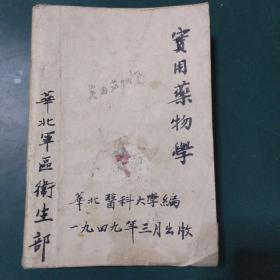 實用藥物學
實用药物學
華北醫科大學編
一九四九年三月出版
華北軍區衛生部